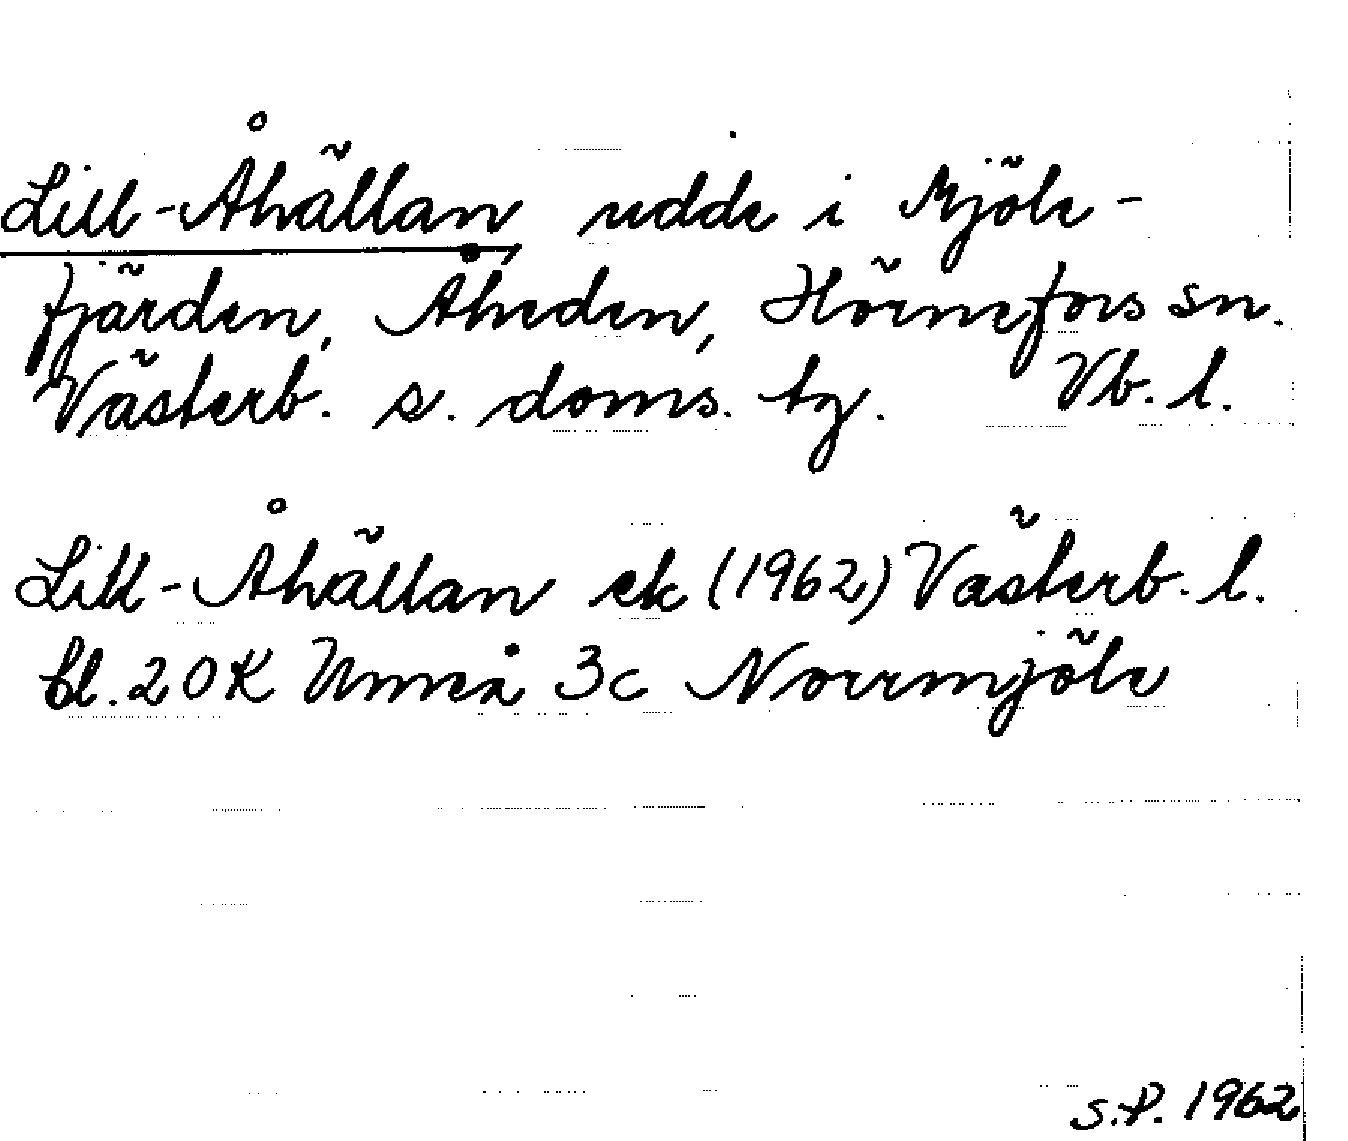 Lill-Åhällan, udde i Mjöle-
fjärden, Åheden, Hörnefors sn.
Västerb. s. doms. tg. Vb. l.
Lill-Åhällan ek (1962) Västerb. l.
bl. 20K Umeå 3c Norrmjöle
S.P. 1962